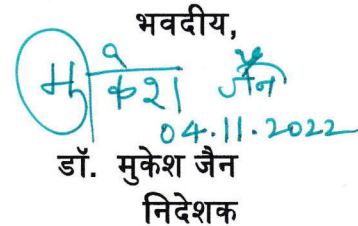 भवदीय,
मुकेश जैन
04.11.2022
डॉ. मुकेश जैन
निदेशक